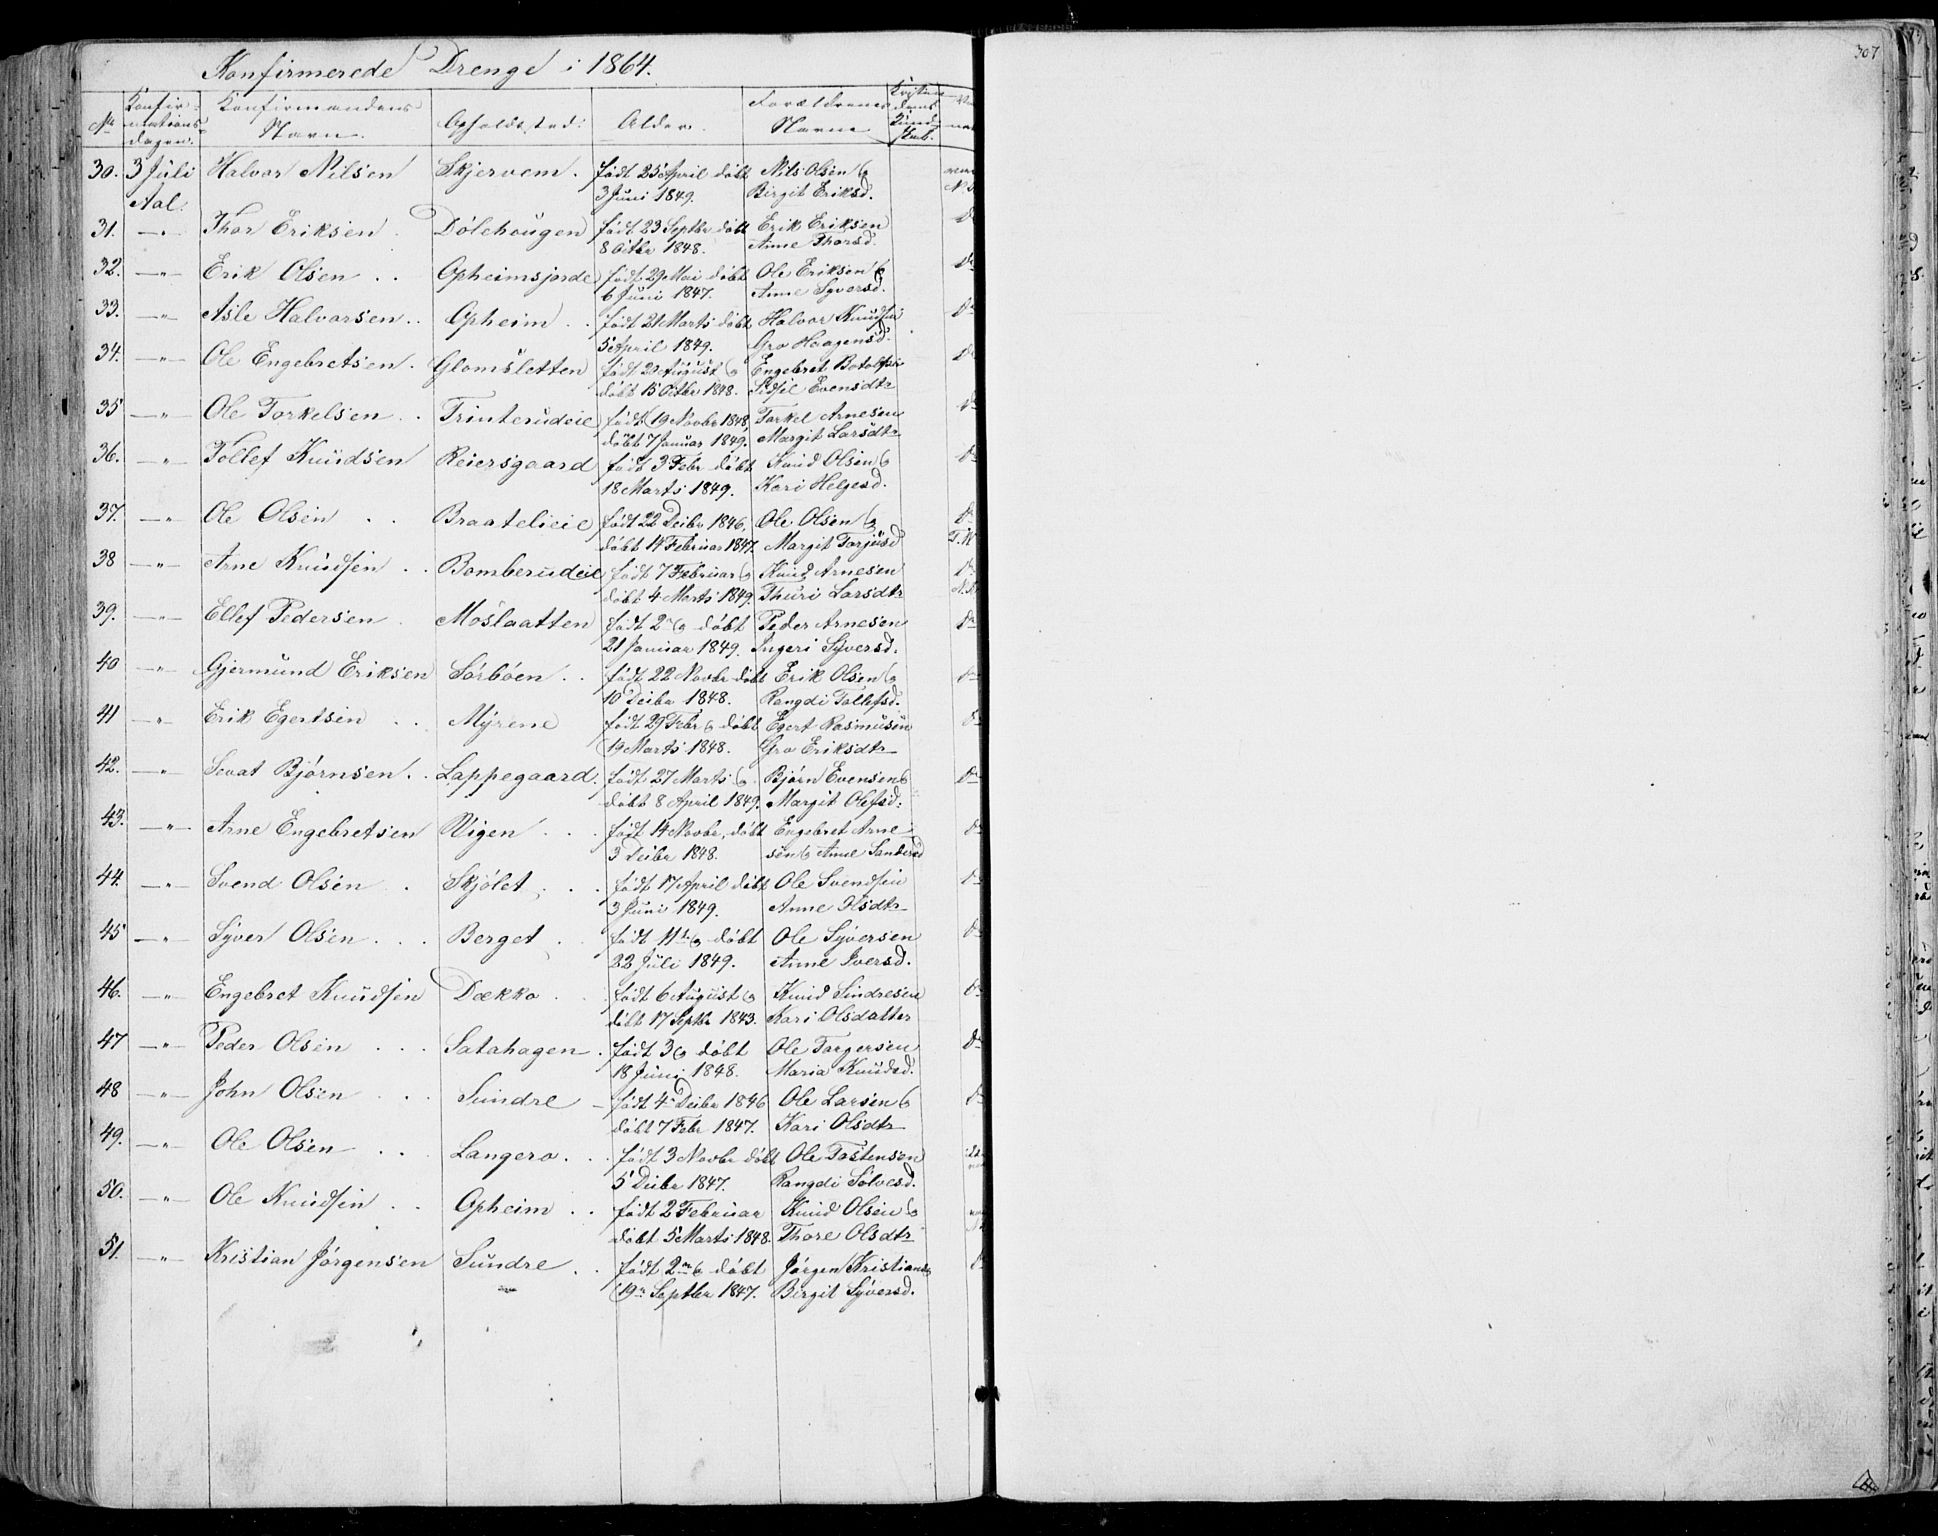 307
Konfirmerede Drenge i 1864.
No Konfirmations dagen. Konfirmandens Navn. Opholdssted: Alder. Forældrenes Navne Kristendoms Kundskab.
30. 3 Juli Halvor Nilsen Skjervem. født 25 April döbt Nils Olsen og
Aal. 3 Juni 1849. Birgit Eriksd.
31. —"— Thor Eriksen Dölehougen født 23 Septbr döbt Erik Eriksen Do
8 Octbr 1848. Anne Thorsd.
32. —"— Erik Olsen . . Opheimsjorde født 29 Mai döbt Ole Eriksen og Do
6 Juni 1847. Anne Syversd.
33. —"— Asle Halvorsen . . Opheim . . født 21 Marts döbt Halvor Knudsen Do
5 April 1849. Gro Haagensd.
34. —"— Ole Engebretsen . Glomsletten født August og Engebret Botolfsen Do
döbt 15 Octbr 1848. Sidsil Evensdtr
35 —"— Ole Torkelsen . . Trinterudeie født 19 Novbr 1848, Torkel Arnesen Do
döbt 7 Januar 1849. Margit Larsdtr
36. —"— Tollef Knudsen Reiersgaard født 3 Febr döbt Knud Olsen og Do
18 Marts 1849. Kari Helgesd.
37. —"— Ole Olsen . . Braatelieie født 22 Decbr 1846, Ole Olsen og Do
döbt 14 Februar 1847. Margit Torjusd
38 —"— Arne Knudsen . . Bomberudeie født 7 Februar og Knud Arnesen Do
döbt 4 Marts 1849. Thuri Larsdtr
39. —"— Ellef Pedersen . Moslaatten født 2 og döbt Peder Arnesen Do
21 Januar 1849. Ingeri Syversd.
40 —"— Gjermund Eriksen Sörböen . . født 22 Novbr döbt Erik Olsen og Do
10 Decbr 1848. Rangdi Tollefsd.
41 —"— Erik Egertsen . . Myrene født 29 Febr og döbt Egert Rasmusen Do
19 Marts 1848. Gro Eriksdtr
42. —"— Sevat Björnsen . . Lappegaard . født 27 Marts og Björn Evensen og Do
döbt 8 April 1849. Margit Olefsd:
43. —"— Arne Engebretsen Rigen . . . født 14 Novbr, döbt Engebret Arne- Do
3 Decbr 1848. sen og Anne Sandersd
44. —"— Svend Olsen . Skjölet . . . født 17 April döbt Ole Svendsen Do
3 Juni 1849. Anne Olsdtr
45 —"— Syver Olsen . . . Berget . født 11te og döbt Ole Syversen Do
22 Juli 1849. Anne Iversd.
46. —"— Engebret Knudsen Dækko . . født 6 August og Knud Sindresen Do
döbt 17 Septbr 1843. Kari Olsdatter
47 —"— Peder Olsen . . . Satahagen . født 3 og döbt Ole Torgersen Do
18 Juni 1848. Maria Knudsd.
48 —"— John Olsen . . . Sundre — født 4 Decbr 1846 Ole Larsen og Do
döbt 7 Febr 1847. Kari Olsdtr
49. —"— Ole Olsen . . . Langero . . født 3 Novbr döbt Ole Tostensen
5 Decbr 1847. Rangdi Sölvesd.
50. —"— Ole Knudsen . . Opheim . . født 2 Februar Knud Olsen og
döbt 5 Marts 1848. Thore Olsdtr
51. —"— Kristian Jörgensen Sundre . . født 2 og döbt Jörgen Kristians Do
19 Septbr 1847. Birgit Syversd.